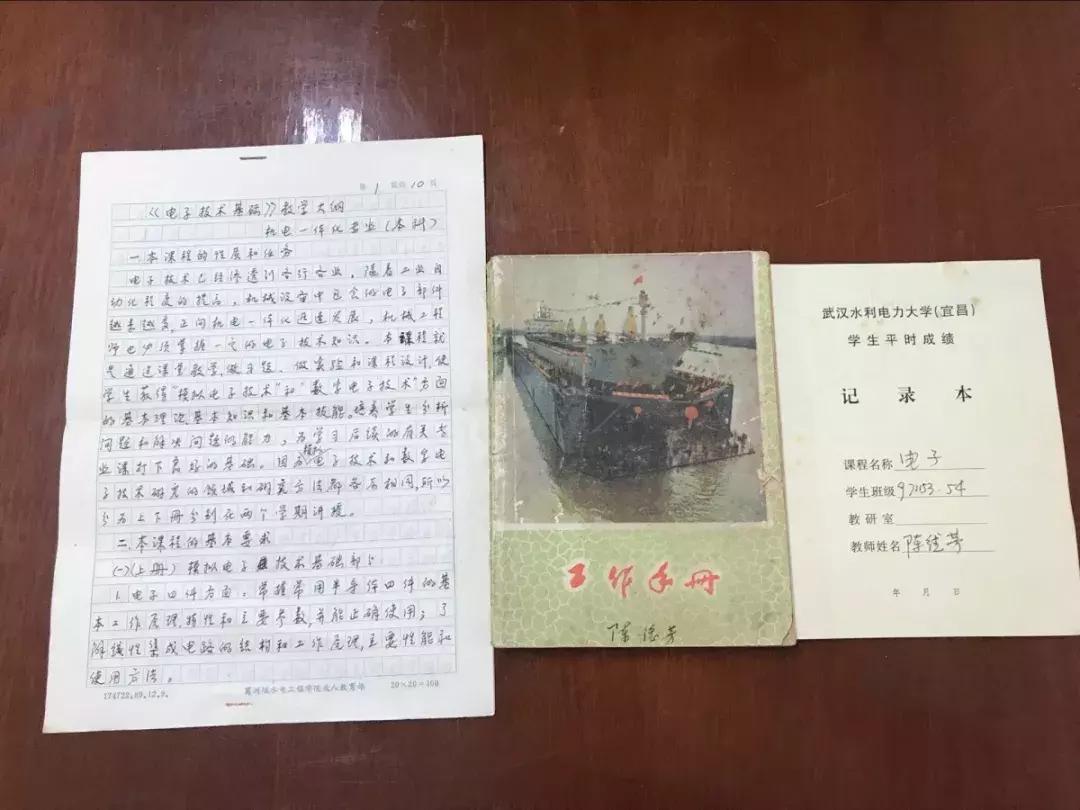 第 1 页共 10 页
《电子技术基础》教学大纲
机电一体化专业（本科）
一 本课程的性质和任务
电子技术已经渗透到各行各业，随着工业自
动化程度的提高，机械设备中包含的电子部件
越来越多，正向机电一体化迅速发展，机械工程
师也必须掌握一定的电子技术知识。本课程就
是通过课堂教学，做习题、做实验和课程设计，使
学生获得"模拟电子技术"和"数字电子技术"方面
的基本理论、基本知识和基本技能。培养学生分析
问题和解决问题的能力，为学习后续的有关专
业课打下良好的基础。因为模拟电子技术和数字电
子技术研究的领域和研究方法都各不相同，所以
分为上下册分别在两个学期讲授。
二、本课程的基本要求
(一)(上册）模拟电子技术基础部分
1. 电子四件方面：掌握常用半导体四件的基
本工作原理特性和主要参数，并能正确使用；了
解线性集成电路的结构和工作原理，主要性能和
使用方法。
174722.89.12.9.
葛洲坝水电工程学院成人教育部
20×20=400
工作手册
陈德芳
武汉水利电力大学(宜昌)
学生平时成绩
记录本
课程名称 电子
学生班级 97153.54
教研室
教师姓名 陈德芳
年 月 日